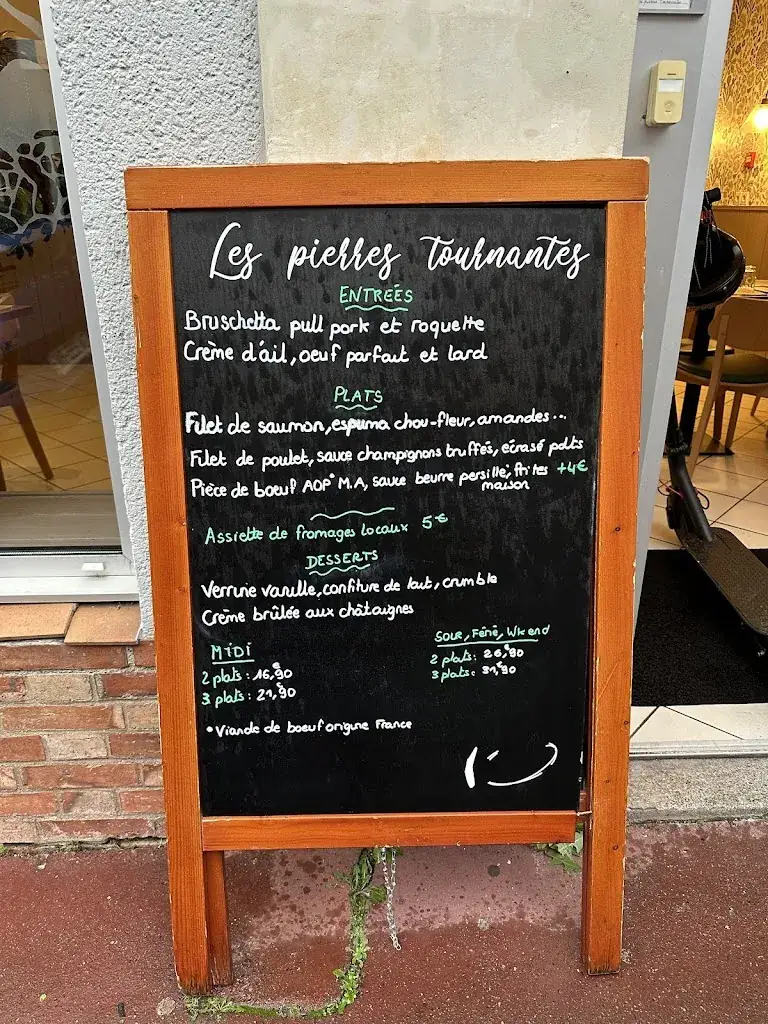 Les pierres tournantes
ENTREES
Bruschetta pull pork et roquette
Crème d'ail, oeuf parfait et lard
PLATS
Filet de saumon, espuma chou-fleur, amandes...
Filet de poulet, sauce champignons truffés, écrasé pdts
Pièce de boeuf AOP* M.A, sauce beurre persillé, frites +4€
maison
Assiette de fromages locaux 5€
DESSERTS
Verrine vanille, confiture de lait, crumble
Crème brûlée aux châtaignes
MIDI
2 plats: 16,€90
3 plats: 21,€90
SOIR, Férié, Wkend
2 plats: 26,€90
3 plats: 31,€90
*Viande de boeuf origine France